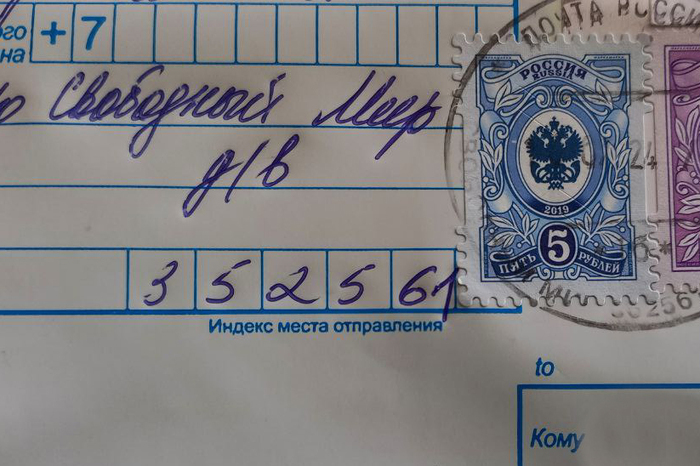 ого
на + 7
ПОЧТА РОССИ
РОССИЯ
RUSSIA
Свободный Мир
24
д/в
2019
5
ПЯТЬ РУБЛЕЙ
3 5 2 5 6 1
Индекс места отправления
35256
to
Кому